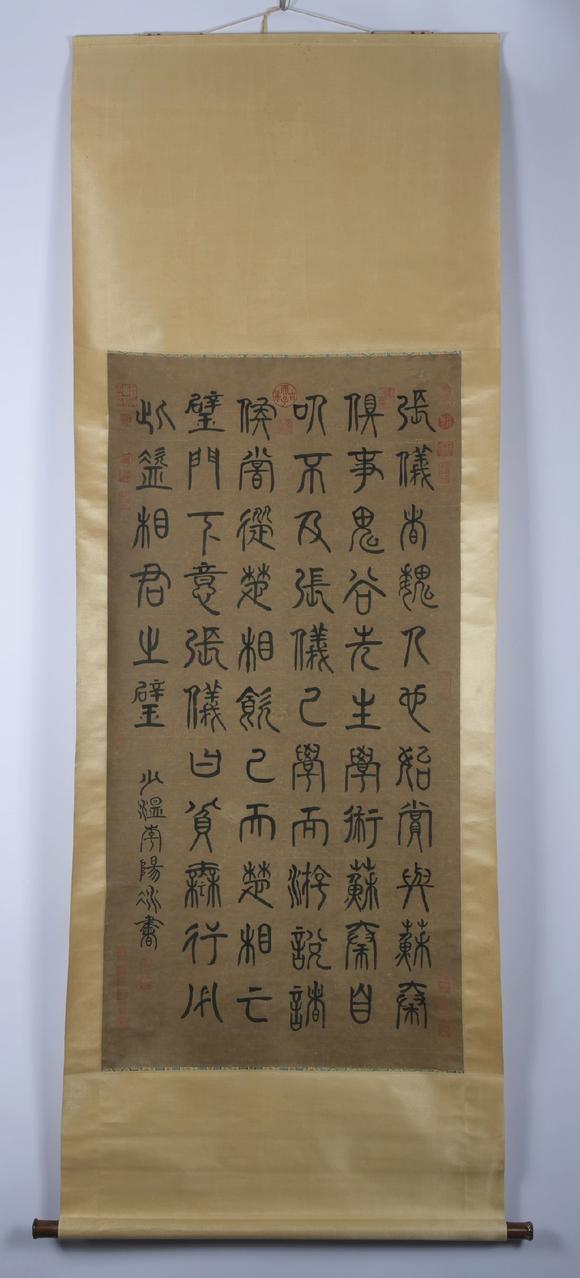 張儀者魏人也始嘗與蘇秦
俱事鬼谷先生學術蘇秦自
以不及張儀已學而游說諸
侯嘗從楚相飲已而楚相亡
璧門下意張儀曰貧無行必
此盜相君之璧
少溫李陽冰書